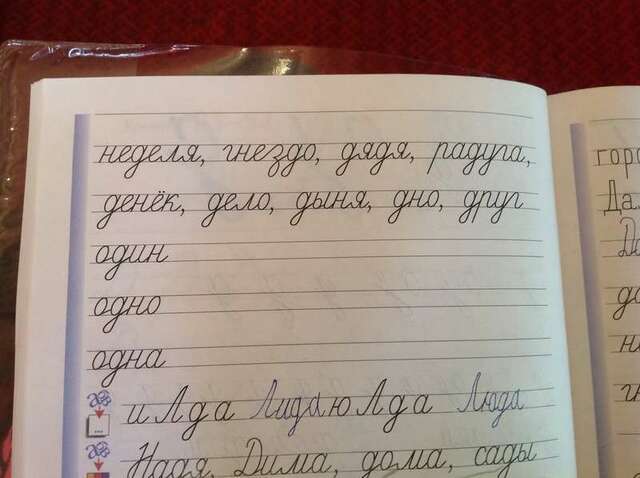 неделя, гнездо, дядя, радуга,
денёк, дело, дыня, дно, друг
один
одно
одна
иЛда Лида юЛда Люда
Надя, Дима, дома, сады
горо
Да
До
до
на